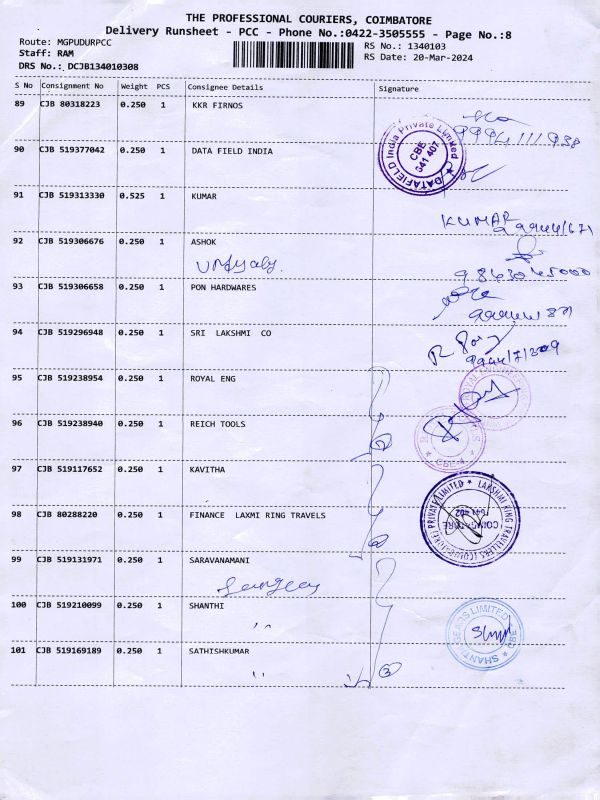 THE PROFESSIONAL COURIERS, COIMBATORE
Delivery Runsheet - PCC - Phone No.:0422-3505555 - Page No.:8
Route: MGPUDURPCC
RS No.: 1340103
Staff: RAM
RS Date: 20-Mar-2024
DRS No.: DCJB134010308
S No Consignment No Weight PCS Consignee Details Signature
89 CJB 80318223 0.250 1 KKR FIRNOS
90 CJB 519377042 0.250 1 DATA FIELD INDIA
DATAFIELD India Private Limited
CBE
641 407
91 CJB 519313330 0.525 1 KUMAR
KUMAR
92 CJB 519306676 0.250 1 ASHOK
93 CJB 519306658 0.250 1 PON HARDWARES
94 CJB 519296948 0.250 1 SRI LAKSHMI CO
95 CJB 519238954 0.250 1 ROYAL ENG
96 CJB 519238940 0.250 1 REICH TOOLS
CBE
97 CJB 519117652 0.250 1 KAVITHA
98 CJB 80288220 0.250 1 FINANCE LAXMI RING TRAVELS
LAKSHMI RING TRAVELLERS (COIMBATORE) PRIVATE LIMITED
COIMBATORE
641 402
99 CJB 519131971 0.250 1 SARAVANAMANI
100 CJB 519210099 0.250 1 SHANTHI
SHANTHI GEARS LIMITED
CBE
101 CJB 519169189 0.250 1 SATHISHKUMAR